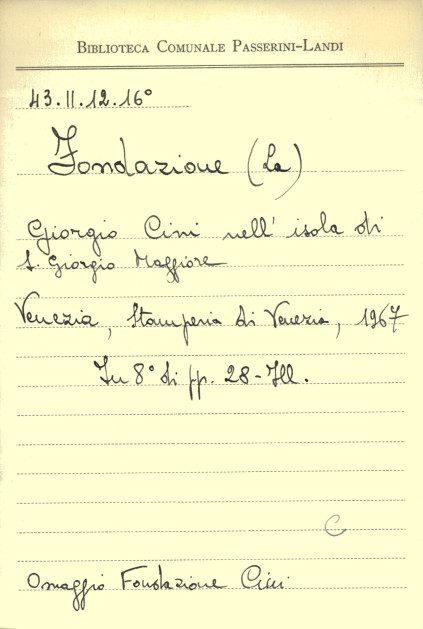 BIBLIOTECA COMUNALE PASSERINI-LANDI
43.II.12.16°
Fondazione (La)
Giorgio Cini nell' isola di
S. Giorgio Maggiore
Venezia, Stamperia di Venezia, 1967
In 8° di pp. 28-Ill.
C
Omaggio Fondazione Cini